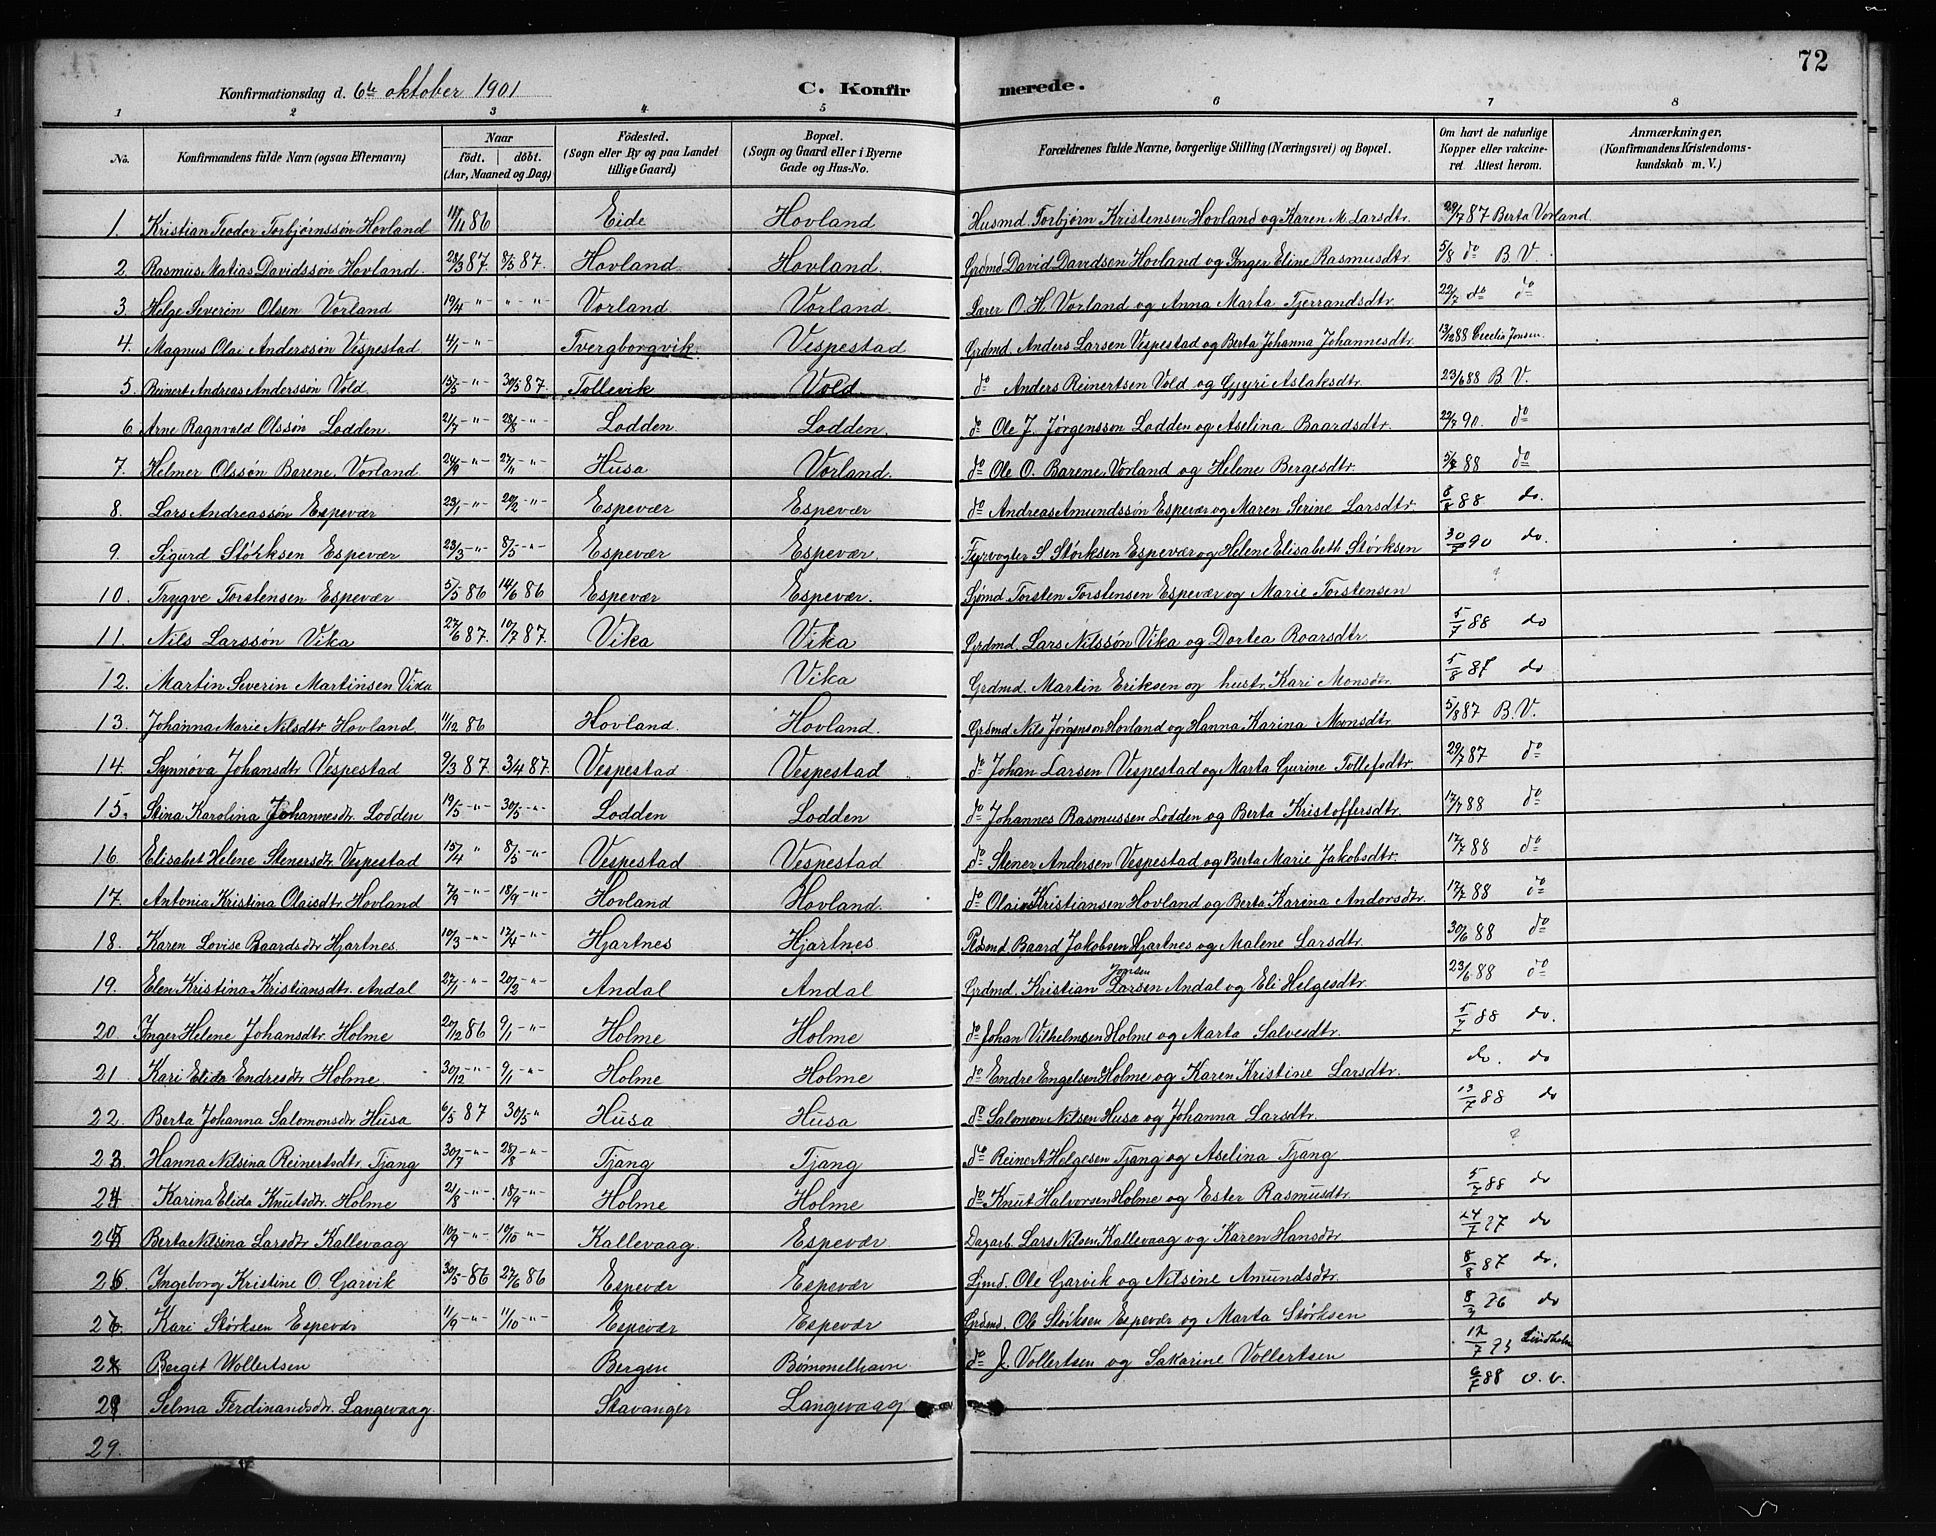 72
Konfirmationsdag d. 6te oktober 1901 C. Konfirmerede.
1 2 3 4 5 6 7 8
No. Konfirmandens fulde Navn (ogsaa Efternavn) Naar født. døbt. (Aar, Maaned og Dag) Fødested. (Sogn eller By og paa Landet tillige Gaard) Bopæl. (Sogn og Gaard eller i Byerne Gade og Hus-No. Forældrenes fulde Navne, borgerlige Stilling (Næringsvei) og Bopæl. Om havt de naturlige Kopper eller vakcineret. Attest herom. Anmærkninger. (Konfirmandens Kristendomskundskab m. V.)
1. Kristian Teodor Torbjørnssøn Hovland 11/11 86 Eide Hovland Husmd. Torbjørn Kristensen Hovland og Karen M. Larsdtr. 29/7 87 Berta Vorland
2. Rasmus Matias Davidssøn Hovland. 28/3 87. 8/5 87. Hovland. Hovland. Grdmd David Davidsen Hovland og Inger Eline Rasmusdtr. 5/8 do B. V.
3. Helge Severin Olsen Vorland 19/4 -"- " -"- Vorland. Vorland. Lærer O. H. Vorland og Anna Marta Tjerrandsdtr. 22/7 do do
4. Magnus Olai Anderssøn Vespestad 4/1 -"- Tvergborgvik. Vespestad Grdmd. Anders Larsen Vespestad og Berta Johanna Johannesdtr. 13/12 88 Cecelie Jonsen.
5. Reinert Andreas Anderssøn Vold. 15/5 -"- 30/5 87. Tollevik Vold do Anders Reinertsen Vold og Gyri Aslaksdtr. 23/6 88 B. V.
6. Arne Ragnvald Olssøn Lodden. 21/7 -"- 28/8 -"- Lodden. Lodden. do Ole J. Jørgenssøn Lodden og Aselina Baardsdtr. 22/7 90. do
7. Helmer Olssøn Barene, Vorland 24/9 -"- 27/11 -"- Husa Vorland. do Ole O. Barene, Vorland og Helene Bergesdtr. 5/8 88 do
8. Lars Andreassøn Espevær 23/1 -"- 20/2 -"- Espevær Espevær do Andreas Amundssøn Espevær og Maren Serine Larsdtr. 8/8 88 do.
9. Sigurd Størksen Espevær 23/3 -"- 8/5 -"- Espevær Espevær. Fyrvogter S. Størksen Espevær og Helene Elisabeth Størksen 30/7 90 do.
10. Trygve Torstensen Espevær 5/5 86 14/6 86 Espevær Espevær. Sjømd. Torsten Torstensen Espevær og Marie Torstensen ?
11. Nils Larssøn Vika 27/6 87. 10/7 87. Vika Vika Grdmd. Lars Nilssøn Vika og Dortea Roarsdtr. 5/7 88 do
12. Martin Severin Martinsen Vika Vika Grdmd. Martin Eriksen og hustr. Kari Monsdtr 5/8 87 do
13. Johanna Marie Nilsdtr. Hovland. 11/12 86 Hovland. Hovland. Grdmd Nils Jørgenson Hovland og Hanna Karina Monsdtr 5/8 87 B. V.
14. Synnøva Johansdtr Vespestad 9/3 87 3/4 87. Vespestad Vespestad do Johan Larsen Vespestad og Marta Gurine Tollefsdtr 29/7 87 do
15. Stina Karolina Johannesdtr. Lodden 19/5 -"- 30/5 -"- Lodden Lodden do Johannes Rasmussen Lodden og Berta Kristoffersdtr. 17/7 88 do
16. Elisabet Helene Stenersdtr. Vespestad 15/4 " 8/5 -"- Vespestad Vespestad do Stener Andersen Vespestad og Berta Marie Jakobsdtr. 17/7 88 do
17. Antonia Kristina Olaisdtr. Hovland 7/9 -"- 18/9 -"- Hovland Hovland. do Olai Kristiansen Hovland og Berta Karina Andersdtr. 17/7 88 do
18. Karen Lovise Baardsdtr Hjartnes. 10/3 -"- 17/4 -"- Hjartnes Hjartnes. Baard Jakobsen Hjartnes og Malene Larsdtr. 30/6 88 do
19. Elen Kristina Kristiansdtr. Andal 27/1 -"- 20/2 -"- Andal Andal Grdmd. Kristian Jonsen Larsen Andal og Eli Helgesdtr. 23/6 88 do
20. Inger Helene Johansdtr. Holme 20/12 86 9/1 -"- Holme Holme do Johan Vilhelmsen Holme og Marta Salvesdtr. 5/7 88 do.
21. Kari Elida Endresdtr Holme 30/12 -"- 9/1 -"- Holme Holme do Endre Engelsen Holme og Karen Kristine Larsdtr. do. do
22. Berta Johanna Salomonsdtr Husa 6/5 87 30/5 -" Husa Husa do Salomon Nilsen Husa og Johanna Larsdtr. 13/7 88 do
23. Hanna Nilsina Reinertsdtr. Tjang 30/7 -"- 28/8 -"- Tjang Tjang do Reinert Helgesen Tjang og Aselina Tjang ?
24. Karina Elida Knutsdtr. Holme 21/8 -"- 18/9 -"- Holme Holme do Knut Halvorsen Holme og Ester Rasmusdtr. 5/7 88 do
25. Berta Nilsina Larsdtr Kallevaag 10/9 -"- 10/10 -"- Kallevaag. Espevær. Dagarb. Lars Nilsen Kallevaag og Karen Hansdtr 24/7 87 do
26. Ingeborg Kristine O. Garvik 30/5 -86 27/6 86 Espevær Espevær Sjmd. Ole Garvik og Nilsine Amundsdtr. 8/8 87 do.
27. Kari Størksen Espevær 11/9 -"- 11/10 -"- Espevær Espevær Grdmd. Ole Størksen Espevær og Marta Størksen 8/9 do
28. Bergit Wollertsen Bergen Bømmelhavn. do J. Vollertsen og Sakarine Vollertsen 12/7 Lindholm
29. Selma Ferdinandsdtr. Langevaag. Stavanger Langevaag 6/7 88 v. v.
29.